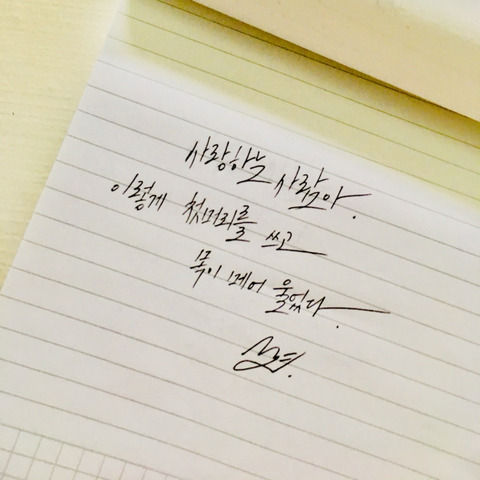 사랑하는 사람아.
이렇게 첫머리를 쓰고
목이 메어 울었다.